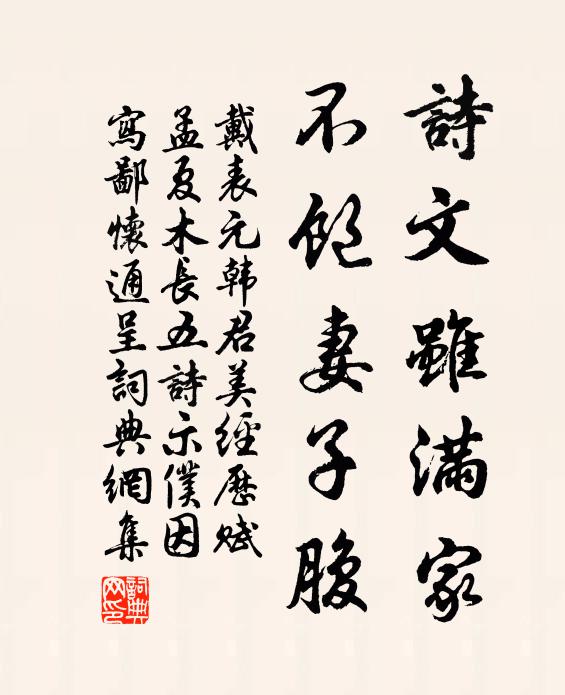 詩文雖滿家
不飽妻子腹
戴表元韓君美經歷賦
孟夏木長五詩示僕因
寫鄙懷通呈詞典網集
詞典
网印